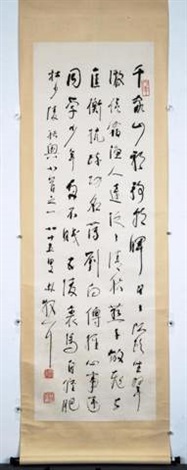 千家山郭靜朝暉日〻江樓坐翠
微信宿漁人還泛〻清秋燕子故飛〻
匡衡抗疏功名薄劉向傳經心事違
同學少年多不賤五陵裘馬自輕肥
杜少陵秋興八首之一 十五叟林散耳